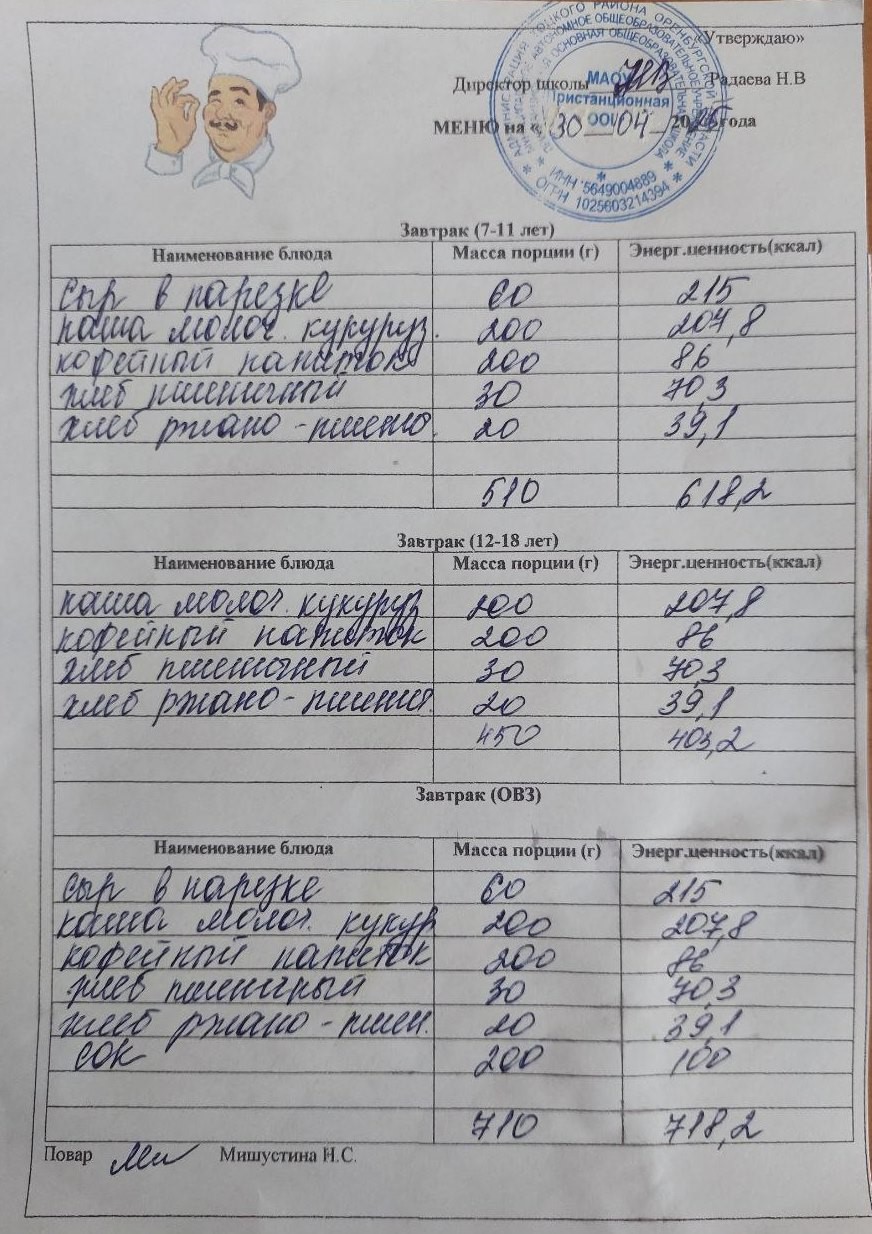 «Утверждаю»
Директор школы Радаева Н.В
МЕНЮ на « 30 04 2025 года
АДМИНИСТРАЦИЯ ТОЦКОГО РАЙОНА ОРЕНБУРГСКОЙ ОБЛАСТИ
МАОУ
Пристанционная
ООШ
ИНН 5649004889
ОГРН 1025603214394
Завтрак (7-11 лет)
Наименование блюда Масса порции (г) Энерг.ценность(ккал)
сыр в нарезке 60 215
каша молоч. кукуруз. 200 207,8
кофейный напиток 200 86
хлеб пшеничный 30 70,3
хлеб ржано-пшено. 20 39,1
510 618,2
Завтрак (12-18 лет)
Наименование блюда Масса порции (г) Энерг.ценность(ккал)
каша молоч. кукуруз 200 207,8
кофейный напиток 200 86
хлеб пшеничный 30 70,3
хлеб ржано-пшенич. 20 39,1
450 403,2
Завтрак (ОВЗ)
Наименование блюда Масса порции (г) Энерг.ценность(ккал)
сыр в нарезке 60 215
каша молоч. кукур 200 207,8
кофейный напиток 200 86
хлеб пшеничный 30 70,3
хлеб ржано-пшен. 20 39,1
сок 200 100
710 718,2
Повар Мишустина Н.С.